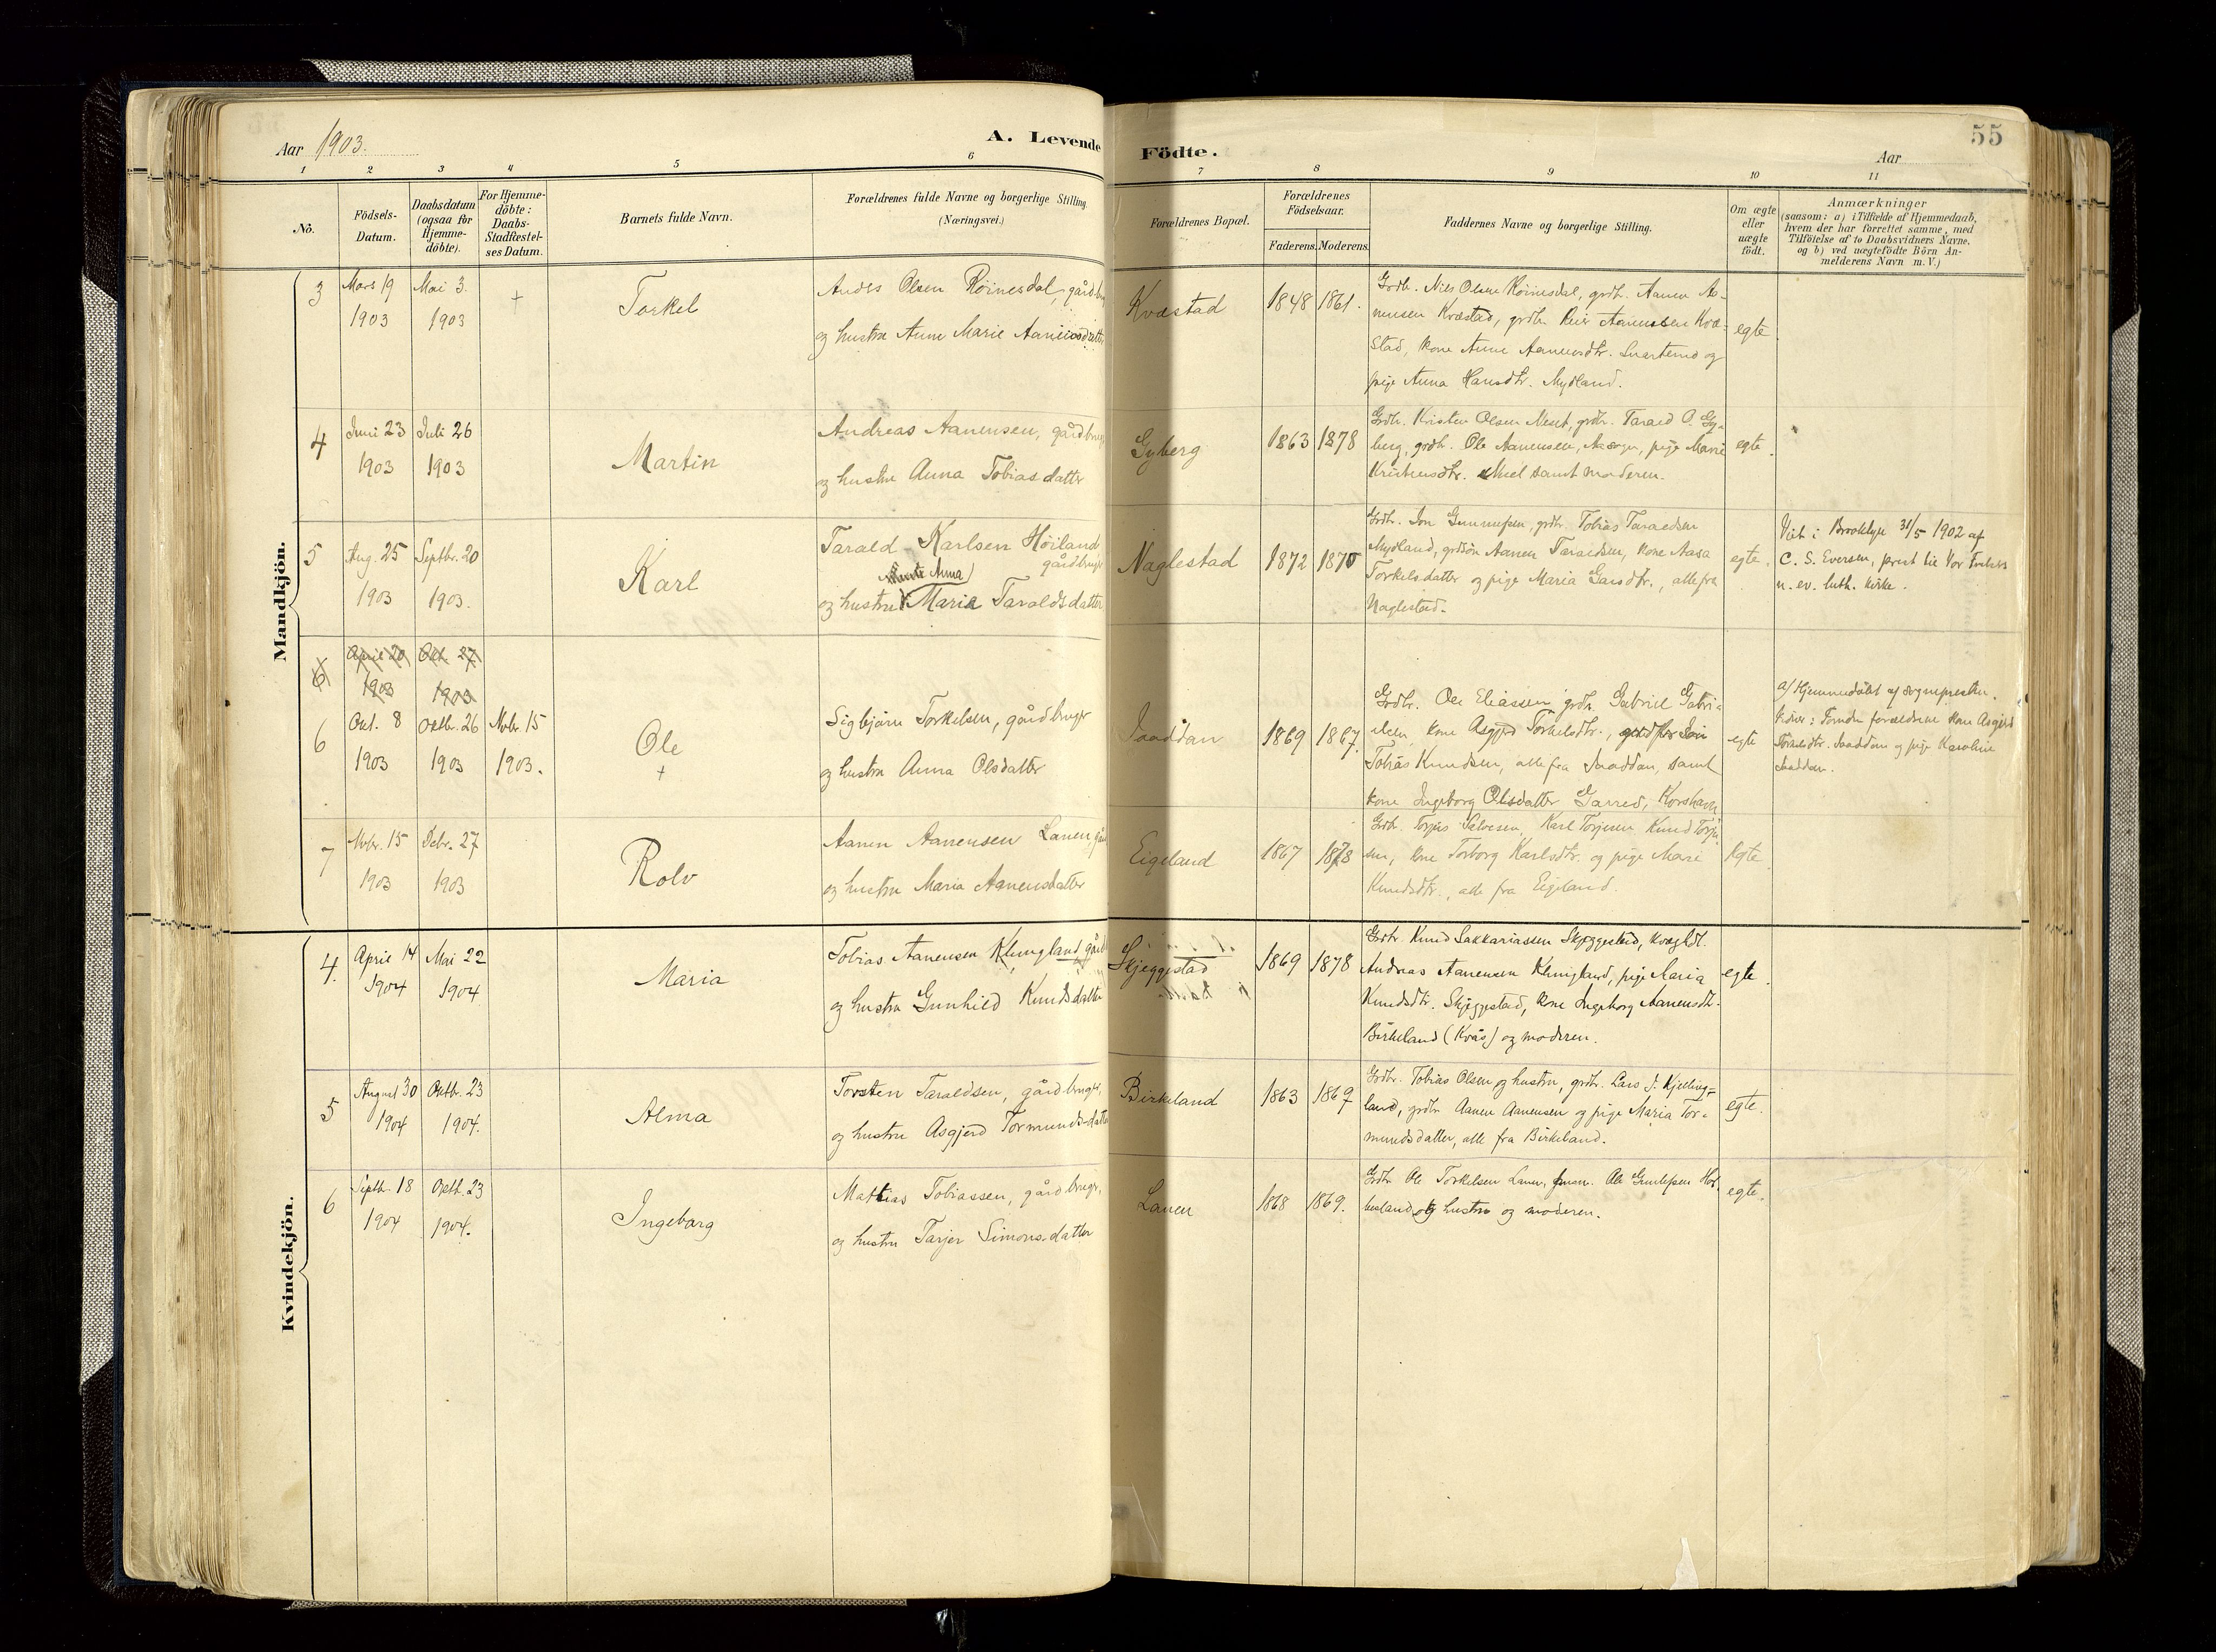 Aar 1903.
A. Levende
Födte.
Aar
55
1 2 3 4 5 6 7 8 9 10 11
Nô.
Födsels-
Datum.
Daabsdatum
(ogsaa for
Hjemme-
döbte).
For Hjemme-
döbte:
Daabs-
Stadfæstel-
ses Datum.
Barnets fulde Navn.
Forældrenes fulde Navne og borgerlige Stilling.
(Næringsvei.)
Forældrenes Bopæl.
Forældrenes
Födselsaar.
Faderens. Moderens.
Faddernes Navne og borgerlige Stilling.
Om ægte
eller
uægte
födt.
Anmærkninger
(saasom: a) i Tilfælde af Hjemmedaab,
hvem der har forrettet samme, med
Tilföielse af to Daabsvidners Navne,
og b) ved uægtefödte Börn An-
melderens Navn m. V.)
Mandkjön.
3
Mars 19
1903
Mai 3.
1903
+
Torkel
Olsen Röinesdal, gård
og hustru Anne Marie
Kvæstad
1848 1861.
Grdbr. Nils Olsen Röinesdal, grdbr. Aanen
Kvæstad, grdbr. Aanensen Kvæ-
stad, kone Anne Aanensdtr. og
pige Anna Hansdtr. Mydland.
egte
4
Juni 23
1903
Juli 26
1903
Martin
Andreas Aanensen, gårdbrug
og hustru Anna Tobiasdatter
Gyberg
1863 1878
Grdbr. Kristen Olsen grdbr. Tarald O. Gy-
berg, grdbr. Ole Aanensen, pige Marie
samt moderen.
egte.
5
Aug. 25
1903
Septbr. 20
1903.
Karl
Tarald Karlsen Höiland
gårdbruger
Anna
og hustru Maria Taraldsdatter
Naglestad
1872 1870
Grdbr. Jon grdbr. Tobias Taraldsen
Mydland, grdsön Aanen Taraldsen, kone Aasa
Torkelsdatter og pige Maria alle fra
Naglestad.
egte.
Viet i Brooklyn 31/5 1902 af
C. S. Eversen, prest til Vor Frelsers
n. ev. luth. kirke.
6
April 20
1903
Okt. 27
1903
6
Okt. 8
1903
Oktbr. 26
1903
Nvbr. 15
1903.
Ole
+
Sigbjörn Torkelsen, gårdbruger
og hustru Anna Olsdatter
Jaaddan
1869 1867.
Grdbr. Ole Eliassen grdbr. Gabriel Gabri-
elsen, kone Asgjerd Torkelsdtr.,
Tobias Knudsen, alle fra Jaaddan, samt
kone Ingeborg Olsdatter
egte
a/ Hjemmedöbt af sognepresten.
foruden forældrene kone Asgjerd
Torkelsdtr. Jaaddan og pige Karoline
Jaaddan.
7
Nvbr. 15
1903
Debr. 27
1903
Rolv
Aanen Aanensen Lauen, går
og hustru Maria Aanensdatter
Eigeland
1867 1878
Grdbr. Torjus Salvesen, Karl Torjusen Knud Torju-
sen, kone Torborg Karlsdtr. og pige Marie
Knudsdtr., alle fra Eigeland.
Egte
Kvindekjön.
4.
April 14
1904
Mai 22
1904
Maria
Tobias Aanensen Klungland, gård
og hustru Gunhild Knudsdatter
Skjeggestad
1869 1878
Grdbr. Knud Sakkariassen Skjeggestad,
Andreas Aanensen Klungland, pige Maria
Knudsdtr. Skjeggestad, kone Ingeborg Aanensdtr.
Birkeland (Kvås) og moderen.
egte.
5
August 30
1904
Oktbr. 23
1904.
Alma
Torsten Taraldsen, gårdbruger,
og hustru Asgjerd Tormundsdatter
Birkeland
1863 1867
Grdbr. Tobias Olsen og hustru, grdbr. Lars J.
land, grdbr. Aanen Aanensen og pige Maria Tor-
mundsdatter, alle fra Birkeland.
egte.
6
Septbr. 18
1904
Oktb. 23
1904.
Ingeborg
Mattias Tobiassen, gårdbruger,
og hustru Tarjer Simonsdatter
Lauen
1868 1869.
Grdbr. Ole Torkelsen Lauen, Ole
og hustru og moderen.
egte.